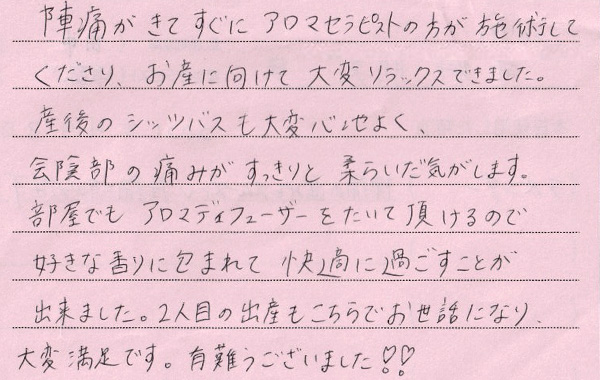 陣痛がきてすぐに アロマセラピストの方が施術して
くださり、お産に向けて 大変リラックスできました。
産後のシッツバスも大変心地よく、
会陰部の痛みがすっきりと 柔らいだ気がします。
部屋でも アロマディフューザーをたいて頂けるので
好きな香りに包まれて 快適に過ごすことが
出来ました。2人目の出産もこちらでお世話になり、
大変満足です。有難うございました!!